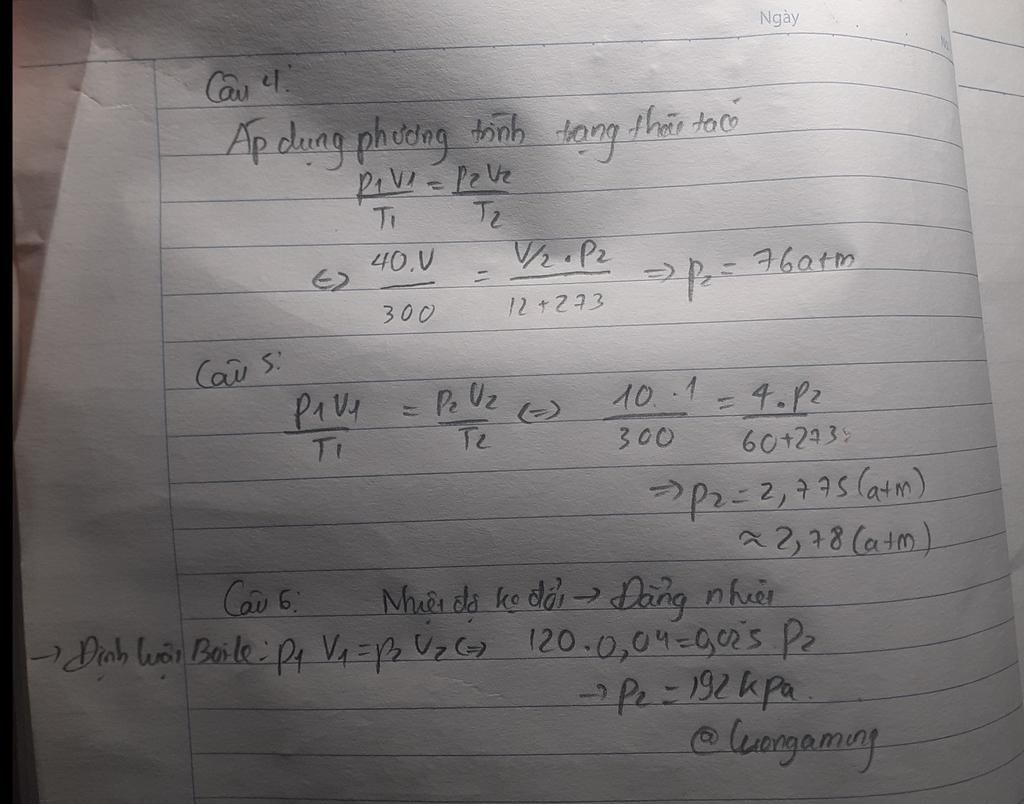 Ngày
Câu 4:
Áp dụng phương trình trạng thái ta có
P1V1/T1 = P2V2/T2
<=> 40.V/300 = V/2.P2/12+273 => P2 = 76atm
Câu 5:
P1V1/T1 = P2V2/T2 <=> 10.1/300 = 4.P2/60+273
=> P2 = 2,775(atm)
≈ 2,78(atm)
Câu 6: Nhiệt độ ko đổi → Đẳng nhiệt
→ Định luật Boile: P1 V1 = P2 V2 <=> 120.0,04=0,025 P2
→ P2 = 192kPa.